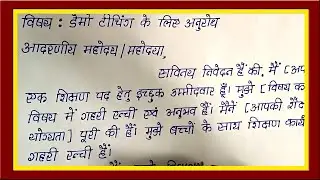 विषय : डेमो टीचिंग के लिए अनुरोध
आदरणीय महोदय/महोदया,
सविनय निवेदन है की, मैं [आप
एक शिक्षण पद हेतु इच्छुक उम्मीदवार हैं। मुझे [विषय का
विषय में गहरी रूची एवं अनुभव हैं। मैंने [आपकी शै
योग्यता] पूरी की हैं। मुझे बच्चों के साथ शिक्षण कार्य
गहरी रूची हैं।